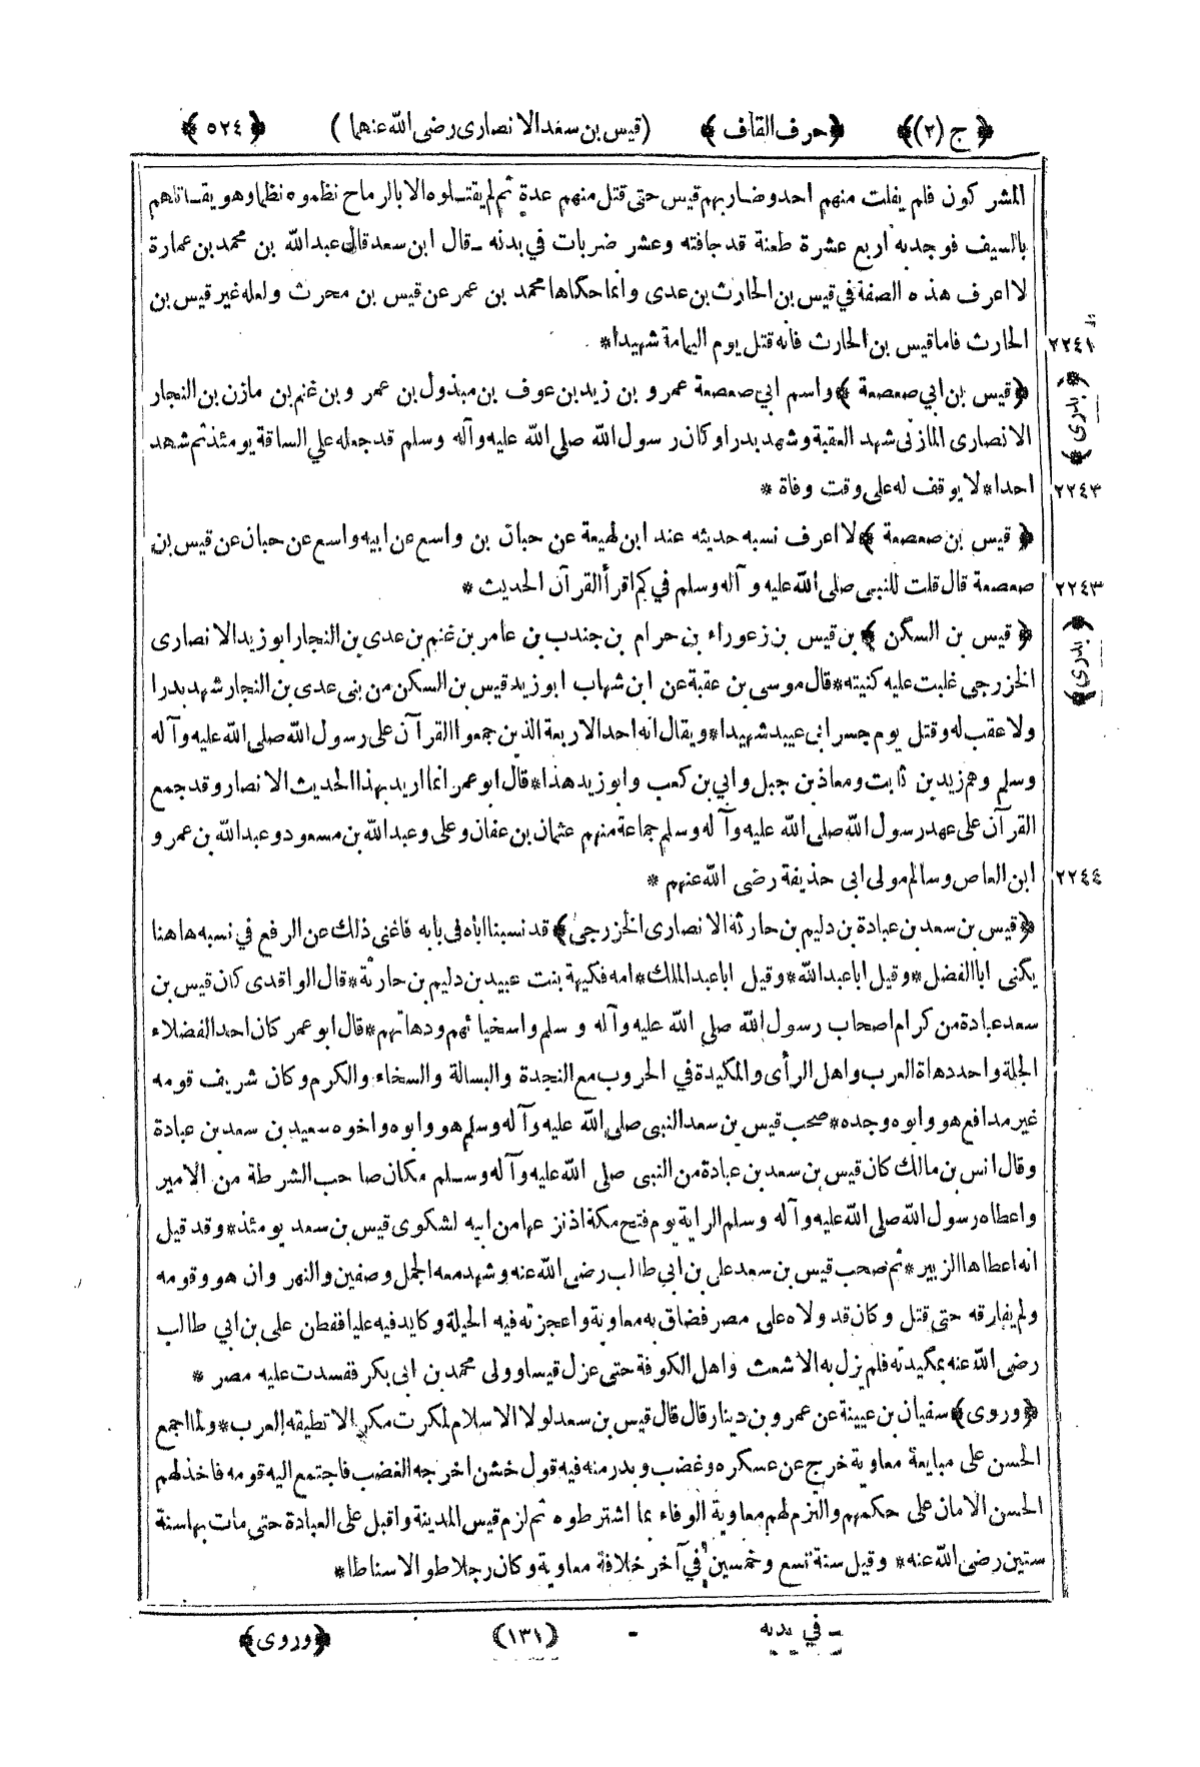 ﴿ ج (٢) ﴾ ﴿ حرف القاف ﴾ (قيس بن سعد الانصارى رضى الله عنهما) ﴿ ٥٢٤ ﴾
المشركون فلم يفلت منهم احد وضاربهم قيس حتى قتل منهم عدة ثم لم يقتلوه الا بالرماح نظموه نظما وهو يقاتلهم
بالسيف فوجد به اربع عشرة طعنة قد جافته وعشر ضربات في بدنه ـ قال ابن سعد قال عبد الله بن محمد بن عمارة
لا اعرف هذه الصفة في قيس بن الحارث بن عدى وانما حكاها محمد بن عمر عن قيس بن محرث ولعله غير قيس بن
الحارث فاما قيس بن الحارث فانه قتل يوم اليمامة شهيدا *
٢٢٤١
﴿ قيس بن ابي صعصعة ﴾ واسم ابي صعصعة عمرو بن زيد بن عوف بن مبذول بن عمرو بن غنم بن مازن بن النجار
﴿ بدرى ﴾
الانصارى المازنى شهد العقبة وشهد بدرا وكان رسول الله صلى الله عليه وآله وسلم قد جعله علي الساقة يومئذ ثم شهد
احدا * لا يوقف له على وقت وفاة *
٢٢٤٣
﴿ قيس بن صعصعة ﴾ لا اعرف نسبه حديثه عند ابن لهيعة عن حبان بن واسع عن ابيه واسع عن حبان عن قيس بن
صعصعة قال قلت للنبى صلى الله عليه و آله وسلم في كم اقرأ القرآن الحديث *
٢٢٤٣
﴿ قيس بن السكن ﴾ بن قيس بن زعوراء بن حرام بن جندب بن عامر بن غنم بن عدى بن النجار ابو زيد الانصارى
﴿ بدرى ﴾
الخزرجى غلبت عليه كنيته * قال موسى بن عقبة عن ابن شهاب ابو زيد قيس بن السكن من بنى عدى بن النجار شهد بدرا
ولا عقب له وقتل يوم جسر ابى عبيد شهيدا * ويقال انه احد الاربعة الذين جمعوا القرآن على رسول الله صلى الله عليه وآله
وسلم وهم زيد بن ثابت ومعاذ بن جبل وابي بن كعب وابو زيد هذا * قال ابو عمر انما اريد بهذا الحديث الانصار وقد جمع
القرآن على عهد رسول الله صلى الله عليه وآله وسلم جماعة منهم عثمان بن عفان وعلى وعبد الله بن مسعود وعبد الله بن عمر و
ابن العاص وسالم مولى ابى حذيفة رضى الله عنهم *
٢٢٤٤
﴿ قيس بن سعد بن عبادة بن دليم بن حارثة الانصارى الخزرجى ﴾ قد نسبنا اباه فى بابه فاغنى ذلك عن الرفع في نسبه هاهنا
يكنى ابا الفضل * وقيل ابا عبد الله * وقيل ابا عبد الملك * امه فكيهة بنت عبيد بن دليم بن حارثة * قال الواقدى كان قيس بن
سعد عبادة من كرام اصحاب رسول الله صلي الله عليه وآله و سلم واسخيائهم ودهاتهم * قال ابو عمر كان احد الفضلاء
الجلة واحد دهاة العرب واهل الرأى والمكيدة في الحروب مع النجدة والبسالة والسخاء والكرم وكان شريف قومه
غير مدافع هو وابوه وجده * صحب قيس بن سعد النبى صلى الله عليه وآله وسلم هو وابوه واخوه سعيد بن سعد بن عبادة
وقال انس بن مالك كان قيس بن سعد بن عبادة من النبى صلى الله عليه وآله وسلم مكان صاحب الشرطة من الامير
واعطاه رسول الله صلى الله عليه وآله وسلم الراية يوم فتح مكة اذ نزعها من ابيه لشكوى قيس بن سعد يومئذ * وقد قيل
انه اعطاها الزبير * ثم صحب قيس بن سعد على بن ابي طالب رضى الله عنه وشهد معه الجمل وصفين والنهروان هو وقومه
ولم يفارقه حتى قتل وكان قد ولاه على مصر فضاق به معاوية واعجزته فيه الحيلة وكايد فيه عليا ففطن على بن ابي طالب
رضى الله عنه بمكيدته فلم يزل به الاشعث واهل الكوفة حتى عزل قيسا وولى محمد بن ابى بكر ففسدت عليه مصر *
﴿ وروى ﴾ سفيان بن عيينة عن عمرو بن دينار قال قال قيس بن سعد لولا الاسلام لمكرت مكرا لا تطيقه العرب * ولما اجمع
الحسن على مبايعة معاوية خرج عن عسكره وغضب وبدر منه فيه قول خشن اخرجه الغضب فاجتمع اليه قومه فاخذ لهم
الحسن الامان على حكمهم والتزم لهم معاوية الوفاء بما اشترطوه ثم لزم قيس المدينة واقبل على العبادة حتى مات بها سنة
ستين رضى الله عنه * وقيل سنة تسع وخمسين في آخر خلافة معاوية وكان رجلا طوالا سناطا *
ـ في يديه - (١٣١) ﴿ وروى ﴾